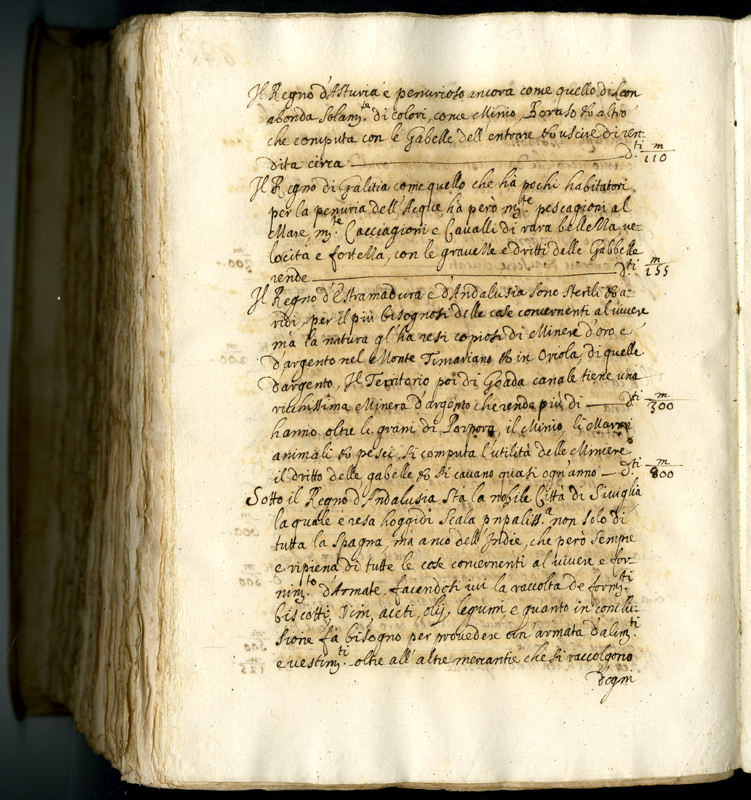 Il Regno d'Asturia è penurioso ancora come quello di Leon
abonda solam.te di colori, come Minio, Boraso & altro
che computa con le Gabelle dell'entrare & uscire di ren-
dita circa — d.ti m/110
Il Regno di Galitia come quello che hà pochi habitatori
per la penuria dell'Acque, hà però m.te pescagioni al
Mare, m.te Cacciagioni e Cavalli di rara bellezza ve-
locità e fortezza, con le gravezze e dritti delle Gabbelle
rende — d.ti m/155
Il Regno d'Estramadura e d'Andalusia sono sterili & a-
ridi, per il più bisognosi delle cose concernenti al vivere
mà la natura gl'ha resi copiosi di Minere d'oro e
d'argento nel Monte Timariano & in Oriola, di quelle
d'argento, Il Territorio poi di Goada canale tiene una
ricchissima Minera d'argento che rende più di — d.ti m/300
hanno oltre li grani di Porpora, il Minio, li Marmi
animali & pesci. si computa l'utilità delle Miniere
il dritto delle gabelle & si cavano quasi ogn'anno — d.ti m/800
Sotto il Regno d'Andalusia sta la nobile Città di Siviglia
la quale è resa hoggidi scala pnpaliss.a non solo di
tutta la Spagna, mà anco dell'Indie, che però sempre
è ripiena di tutte le cose concernenti al vivere e for-
nim.to d'Armate, facendosi ivi la raccolta de form.ti
biscotti, Vini, aceti, olij, legumi e quanto in conclu-
sione fà bisogno per provedere un'armata d'alim.ti
e vestim.ti oltre all'altre mercantie che si raccolgono
d'ogni